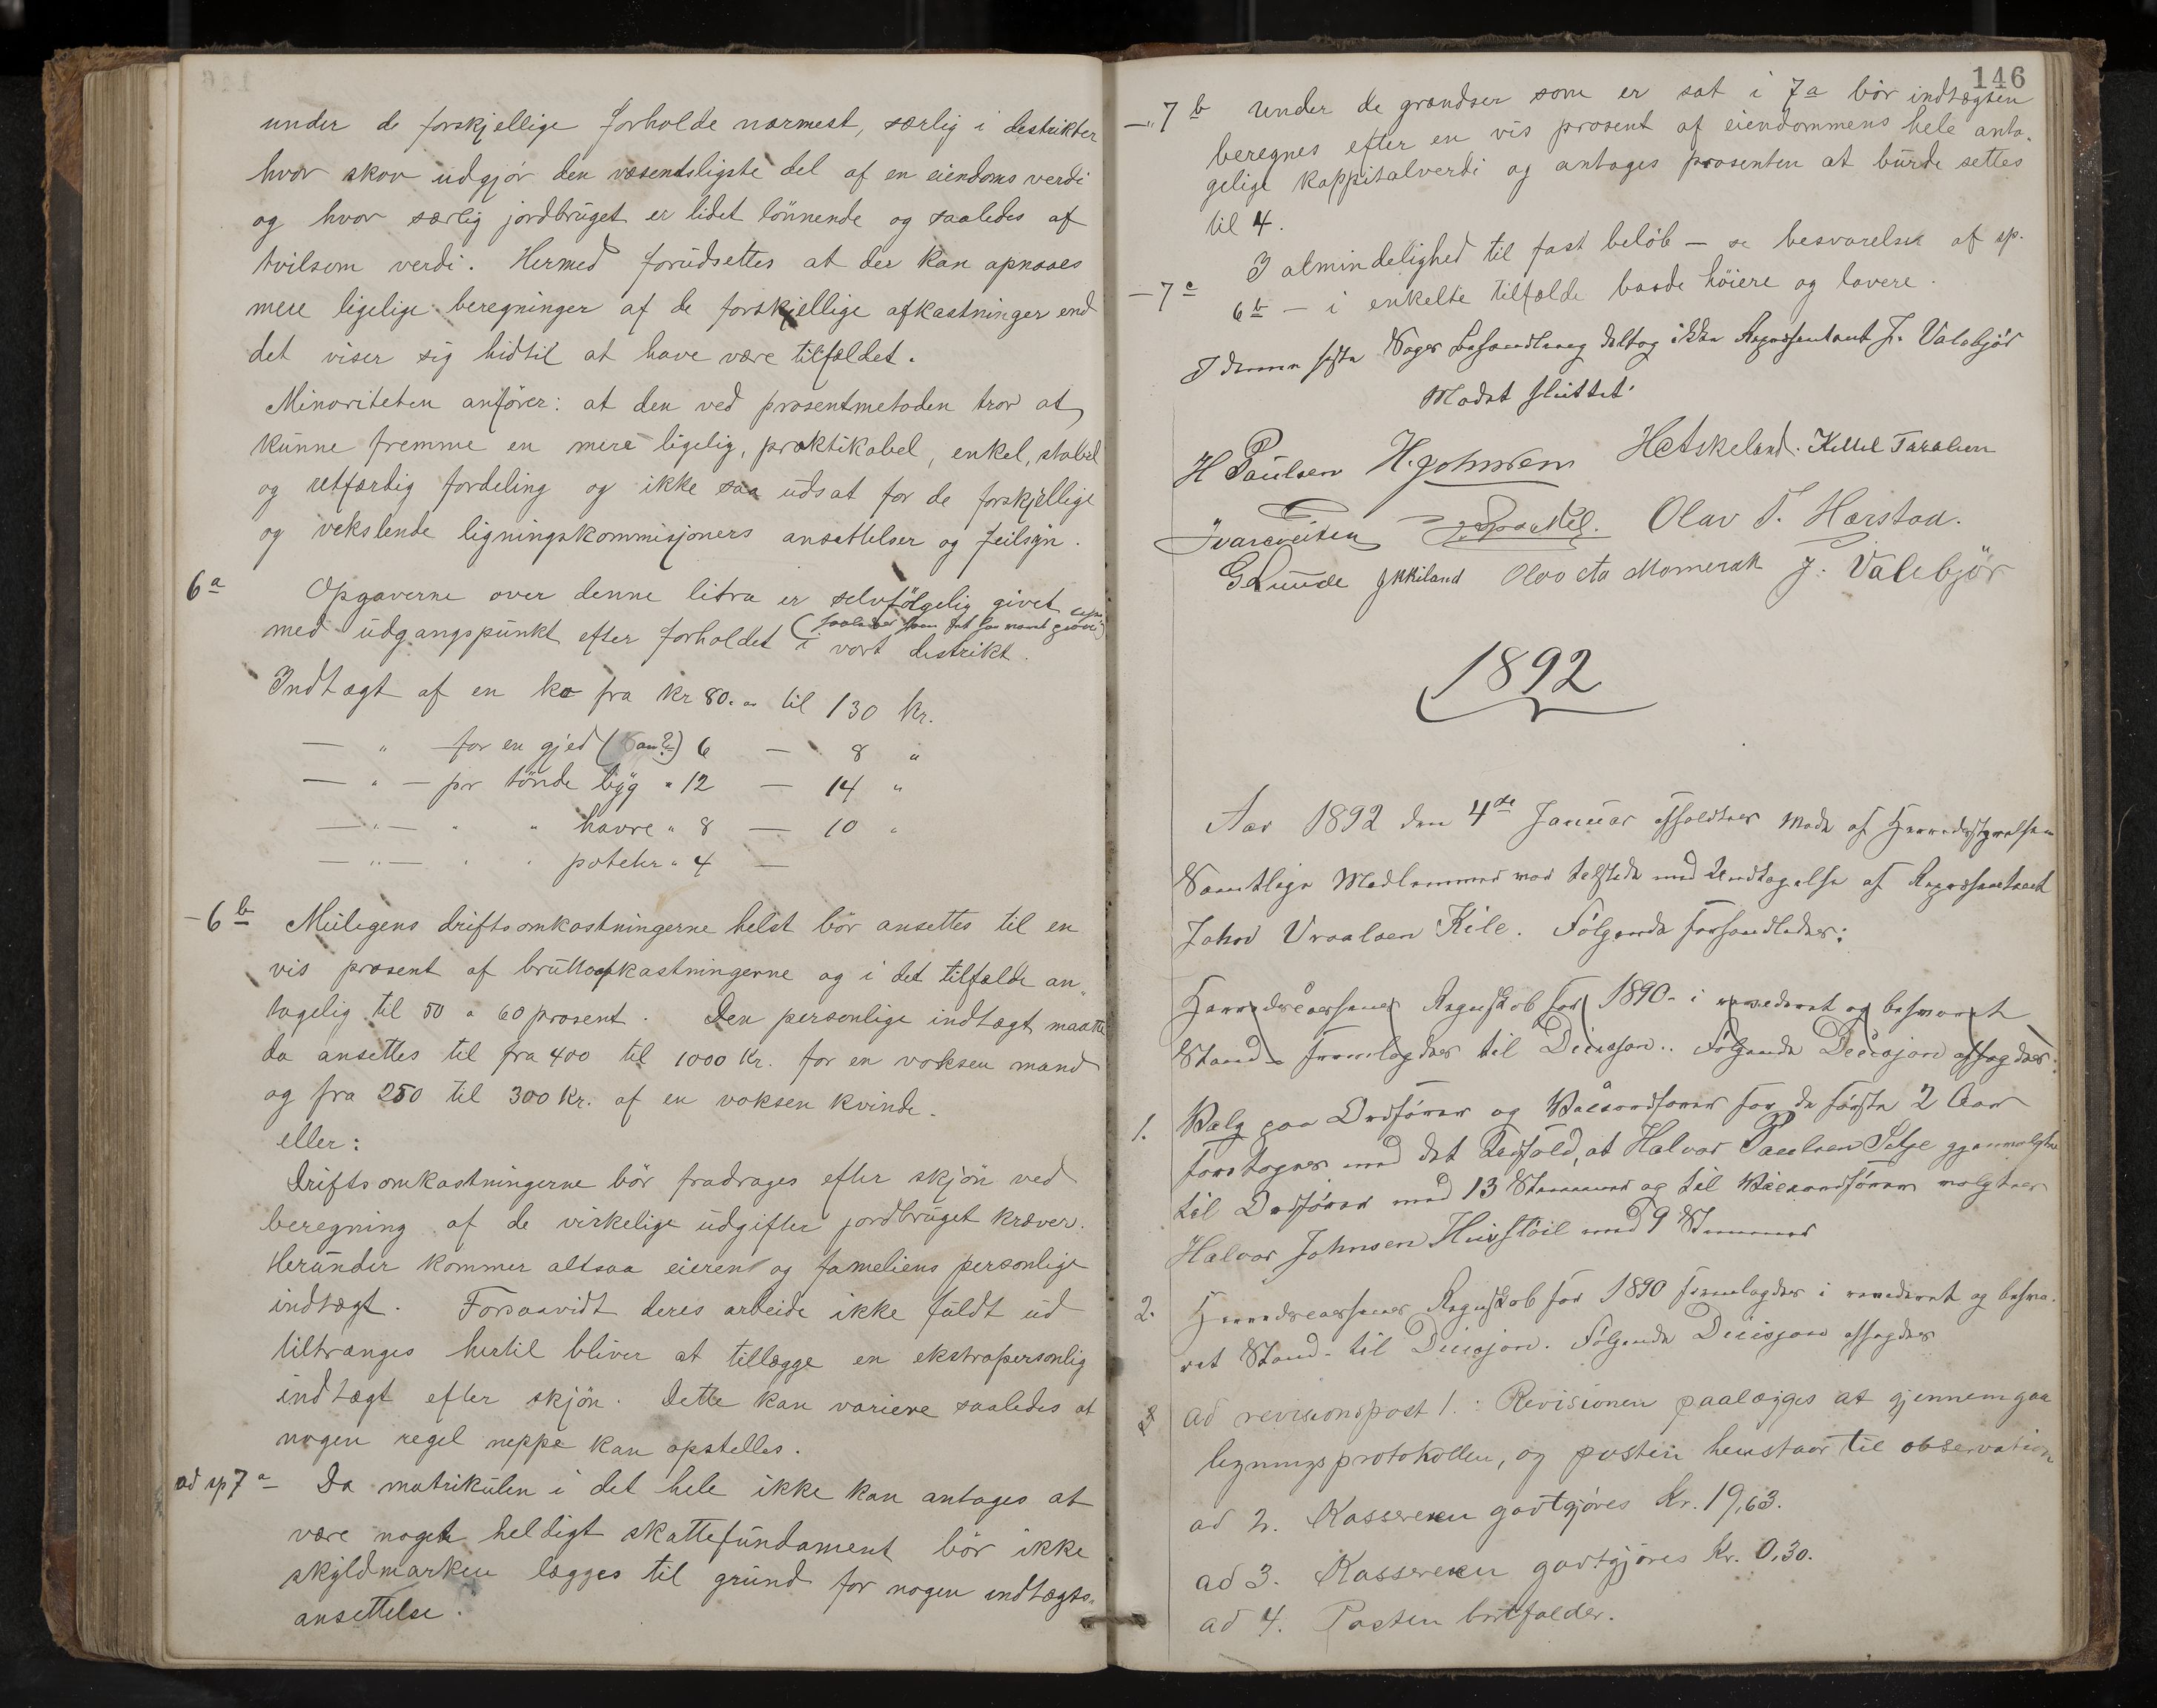 under de forskjellige forholde nærmest, særlig i destrikter
hvor skov udgjør den væsentsligste del af en eiendoms verdi
og hvor særlig jordbruget er lidet lönnende og saaledes af
tvilsom verdi. Hermed forudsettes at der kan opnaaes
mere ligelige beregninger af de forskjellige afkastninger end
det viser sig hidtil at have være tilfældet.
Minoriteten anförer: at den ved prosentmetoden tror at
kunne fremme en mere ligelig, praktikabel, enkel, stabel
og retfærdig fordeling og ikke saa udsat for de forskjellige
og vekslende ligningskommisjoners ansættelser og feilsyn.
6a Opgaverne over denne litra er selvfölgelig givet
med udgangspunkt efter forholdet i vort destrikt.
Indtægt af en ko fra kr 80.- til 130 kr.
— " for en gjed 6 — 8 "
— " — pr tönde byg " 12 — 14 "
— " — " " havre " 8 — 10 "
— " — " " poteter " 4 —
- 6b Muligens driftsomkostningerne helst bör ansettes til en
vis prosent af bruttoafkastningerne og i det tilfælde an-
tagelig til 50 a 60 prosent. Den personlige indtægt maatte
da ansettes til fra 400 til 1000 Kr. for en voksen mand
og fra 250 til 300 Kr. af en voksen kvinde.
eller:
Driftsomkastningerne bör fradrages efter skjön ved
beregning af de virkelige udgifter jordbruget kræver.
Herunder kommer altsaa eieren og fameliens personlige
indtægt. Forsaavidt deres arbeide ikke fuldt ud
tiltrænges hertil bliver at tillægge en ekstrapersonlig
indtægt efter skjön. Dette kan variere saaledes at
nogen regel neppe kan opstelles.
ad sp 7a — Da matrikulen i det hele ikke kan antages at
være noget heldigt skattefundament bör ikke
skyldmarken lægges til grund for nogen indtægts-
ansettelse.
146
— 7b Under de grændser som er sat i 7a bör indtægten
beregnes efter en vis prosent af eiendommens hele anta-
gelige kappitalverdi og antages prosenten at burde settes
til 4.
— 7c I almindelighed til fast belöb — se besvarelse af sp.
6b — i enkelte tilfælde baade höiere og lavere.
I denne sidste Sags Behandling deltog ikke Repræsentant J. Valebjör
Mödet sluttet.
H Paulsen H. Johnsen H Askeland. Kittel Taraldsen
Olav T. Harstad.
G Lunde J. Valebjör
1892
Aar 1892 den 4de Januar afholdtes Möde af Herredsstyrelsen
Samtlige Medlemmer var tilstede med Undtagelse af Repræsentant
Johvd Uraalsen Kile. Fölgende forhandledes:
Herredskassens Regnskab for 1890 - i revideret og besvaret
Stand - fremlagdes til Decisjon. Fölgende Decisjon afsagdes:
1. Valg paa Ordförer og Viceordförer for de förste 2 Aar
foretoges med det Udfald, at Halvor Paulsen Selje gjenvalgtes
til Ordförer med 13 Stemmer og til Viceordförer valgtes
Halvor Johnsen Huvstöil med 9 Stemmer
2. Herredskassens Regnskab for 1890 fremlagdes i revideret og besva-
ret Stand - til Decisjon. Fölgende Decisjon afsagdes
ad revisionspost 1.: Revisionen paalægges at gjennemgaa
ligningsprotokollen, og posten henstaar til observation
ad 2. Kassereren godtgjöres Kr. 19,63.
ad 3. Kassereren godtgjöres Kr. 0,30.
ad 4. Posten bortfalder.